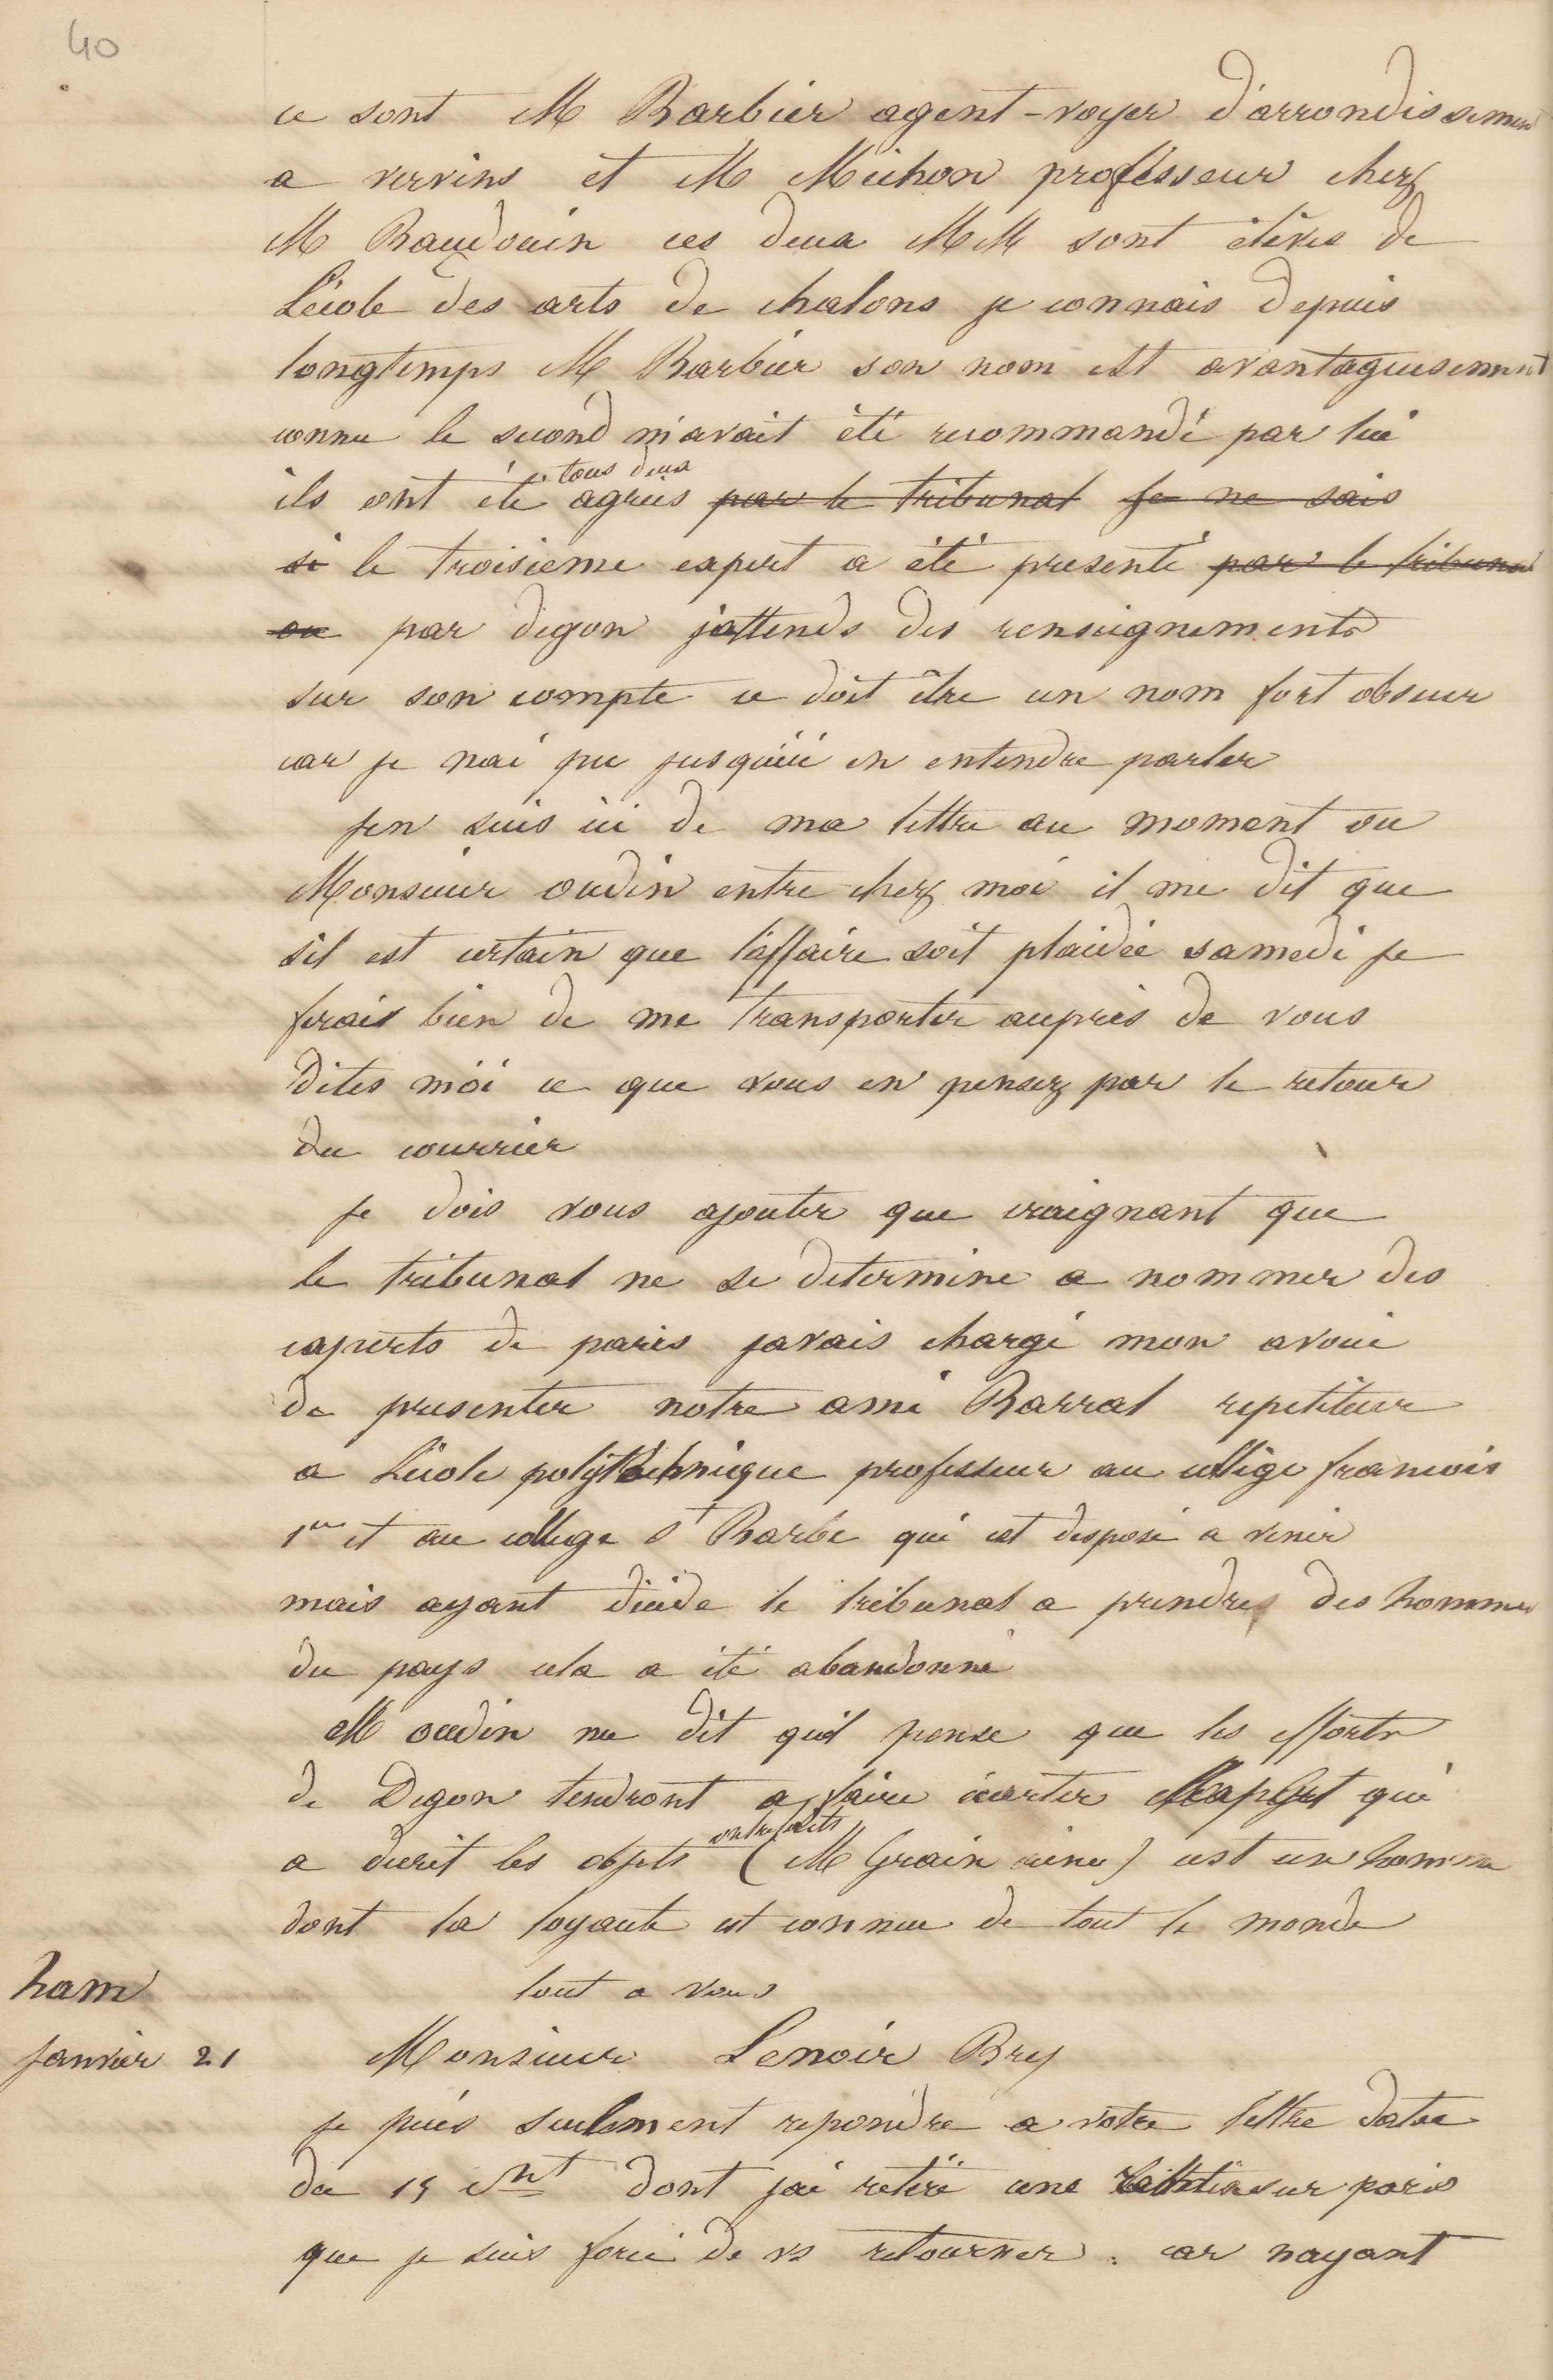 40
ce sont M Barbier agent-voyer d'arrondissement
a vervins et M Michon professeur chez
M Baudouin ces deux MM sont élèves de
L'école des arts de chalons je connais depuis
longtemps M Barbier son nom est avantageusement
connu le second m'avait été recommandé par lui
tous deux
ils ont été agrees par le tribunal je ne sais
si le troisieme expert a été presenté par le tribunal
ou par degon j'attends des renseignements
sur son compte ce doit être un nom fort obscur
car je nai pu jusqu'ici en entendre parler
jen suis ici de ma lettre au moment ou
Monsieur oudin entre chez moi il me dit que
s'il est certain que l'affaire soit plaidée samedi je
ferais bien de me transporter auprès de vous
dites moi ce que vous en pensez par le retour
du courrier
je dois vous ajouter que craignant que
le tribunal ne se determine a nommer des
experts de paris javais chargé mon avoué
de presenter notre ami Barral repetiteur
a L'école polytechnique professeur au collège francois
1er et au college St Barbe qui est disposé a venir
mais ayant décidé le tribunal a prendre des hommes
du pays cela a été abandonné
M oudin me dit quil pense que les efforts
de Degon tendront a faire écarter l'expert qui
contrefaits
a decrit les objets (M Grain ainé) cest un homme
dont la loyauté est connue de tout le monde
tout a vous
ham
janvier 21
Monsieur Lenoir Bry
je puis seulement repondre a votre lettre datée
du 15 Cnt dont jai retiré une sur paris
que je suis forcé de vs retourner. car nayant